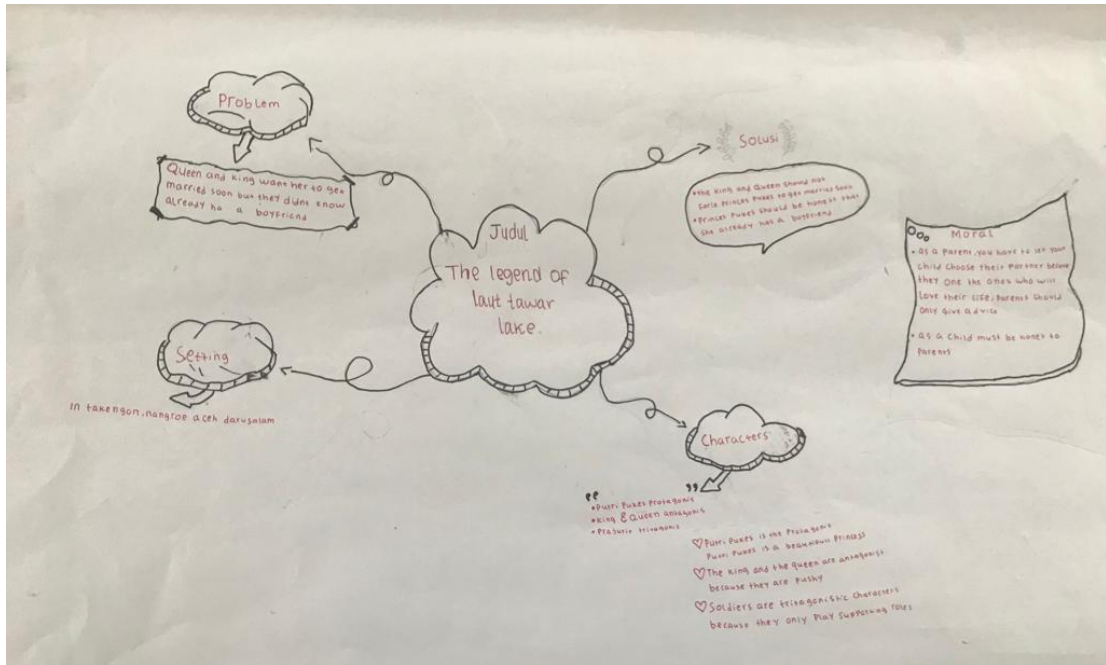 Judul
The legend of
laut tawar
lake.
Problem
Queen and King want her to get
married soon but they didnt know
already ha a boyfriend
Setting
In takengon, nangroe aceh darusalam
Solusi
• the King and Queen should not
Princes Pukes to get married soon
• Princes Pukes should be honest that
she already has a boyfriend
Moral
• as a Parent, you have to let your
child choose their Partner
they one the ones who will
Love their Life, Parents should
only give advice
• as a child must be honet to
Parents
Characters
• Putri Pukes Protagonis
• King & Queen antagonis
• Prajurit tritagonis
Putri Pukes is the Protagonis
Putri Pukes is a beautifull Princess
The King and the queen are antagonist
because they are pushy
Soldiers are tritagonistic characters
because they only Play supporting roles